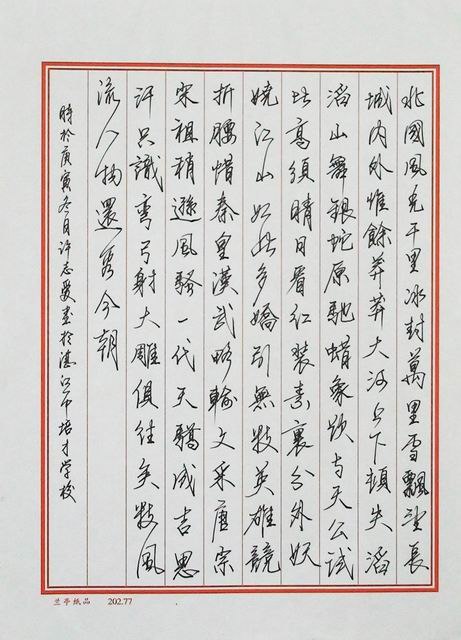 北國風光千里冰封萬里雪飄望長
城内外惟餘莽莽大河上下頓失滔
滔山舞銀蛇原馳蜡象欲与天公試
比高須晴日看红装素裹分外妖
娆江山如此多嬌引無數英雄競
折腰惜秦皇漢武略輸文采唐宗
宋祖稍遜風騷一代天驕成吉思
汗只識彎弓射大雕俱往矣數風
流人物還看今朝
時於庚寅冬月许志愛書於湛江市培才学校
兰亭纸品 202.77